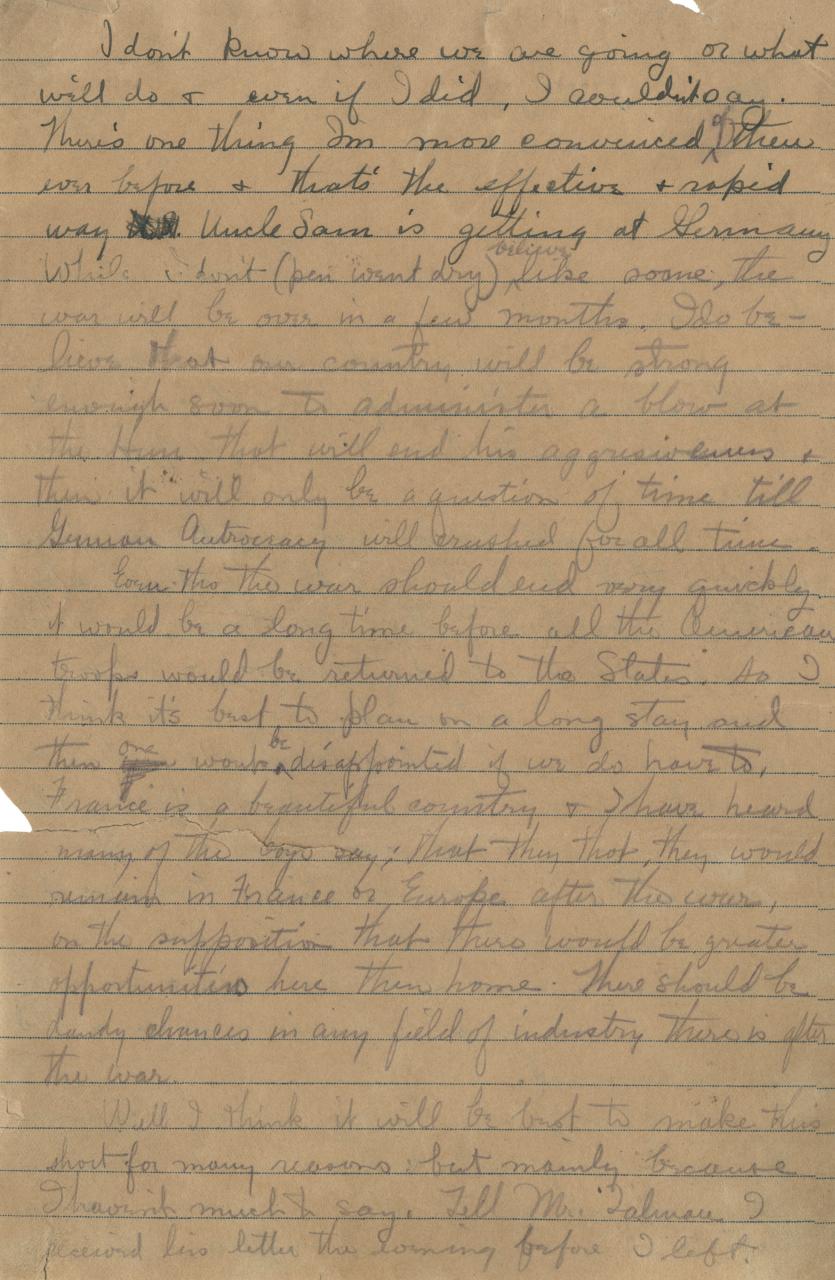 I don't know where we are going or what
we'll do & even if I did, I wouldn't say.
There's one thing Im more convinced of then
ever before & that's the effective & rapid
way Uncle Sam is getting at Germany
While I don't (pen went dry) believe like some, the
war will be over in a few months. I do be-
lieve that our country will be strong
enough soon to administer a blow at
the Hun that will end his aggresiveness &
then it will only be a question of time till
German Autrocracy will crushed for all time.
Even tho the war should end very quickly
it would be a long time before all the American
troops would be returned to the States. So I
think it's best to plan on a long stay and
then one wont be disappointed if we do have to.
France is a beautiful country & I have heard
many of the boys say; that they that, they would
remain in France or Europe after the war,
on the supposition that there would be greater
opportunities here then home. There should be
dandy chances in any field of industry there is after
the war.
Well I think it will be best to make this
short for many reasons: but mainly because
I haven't much to say. Tell Mr. Talman I
received his letter the evening before I left.